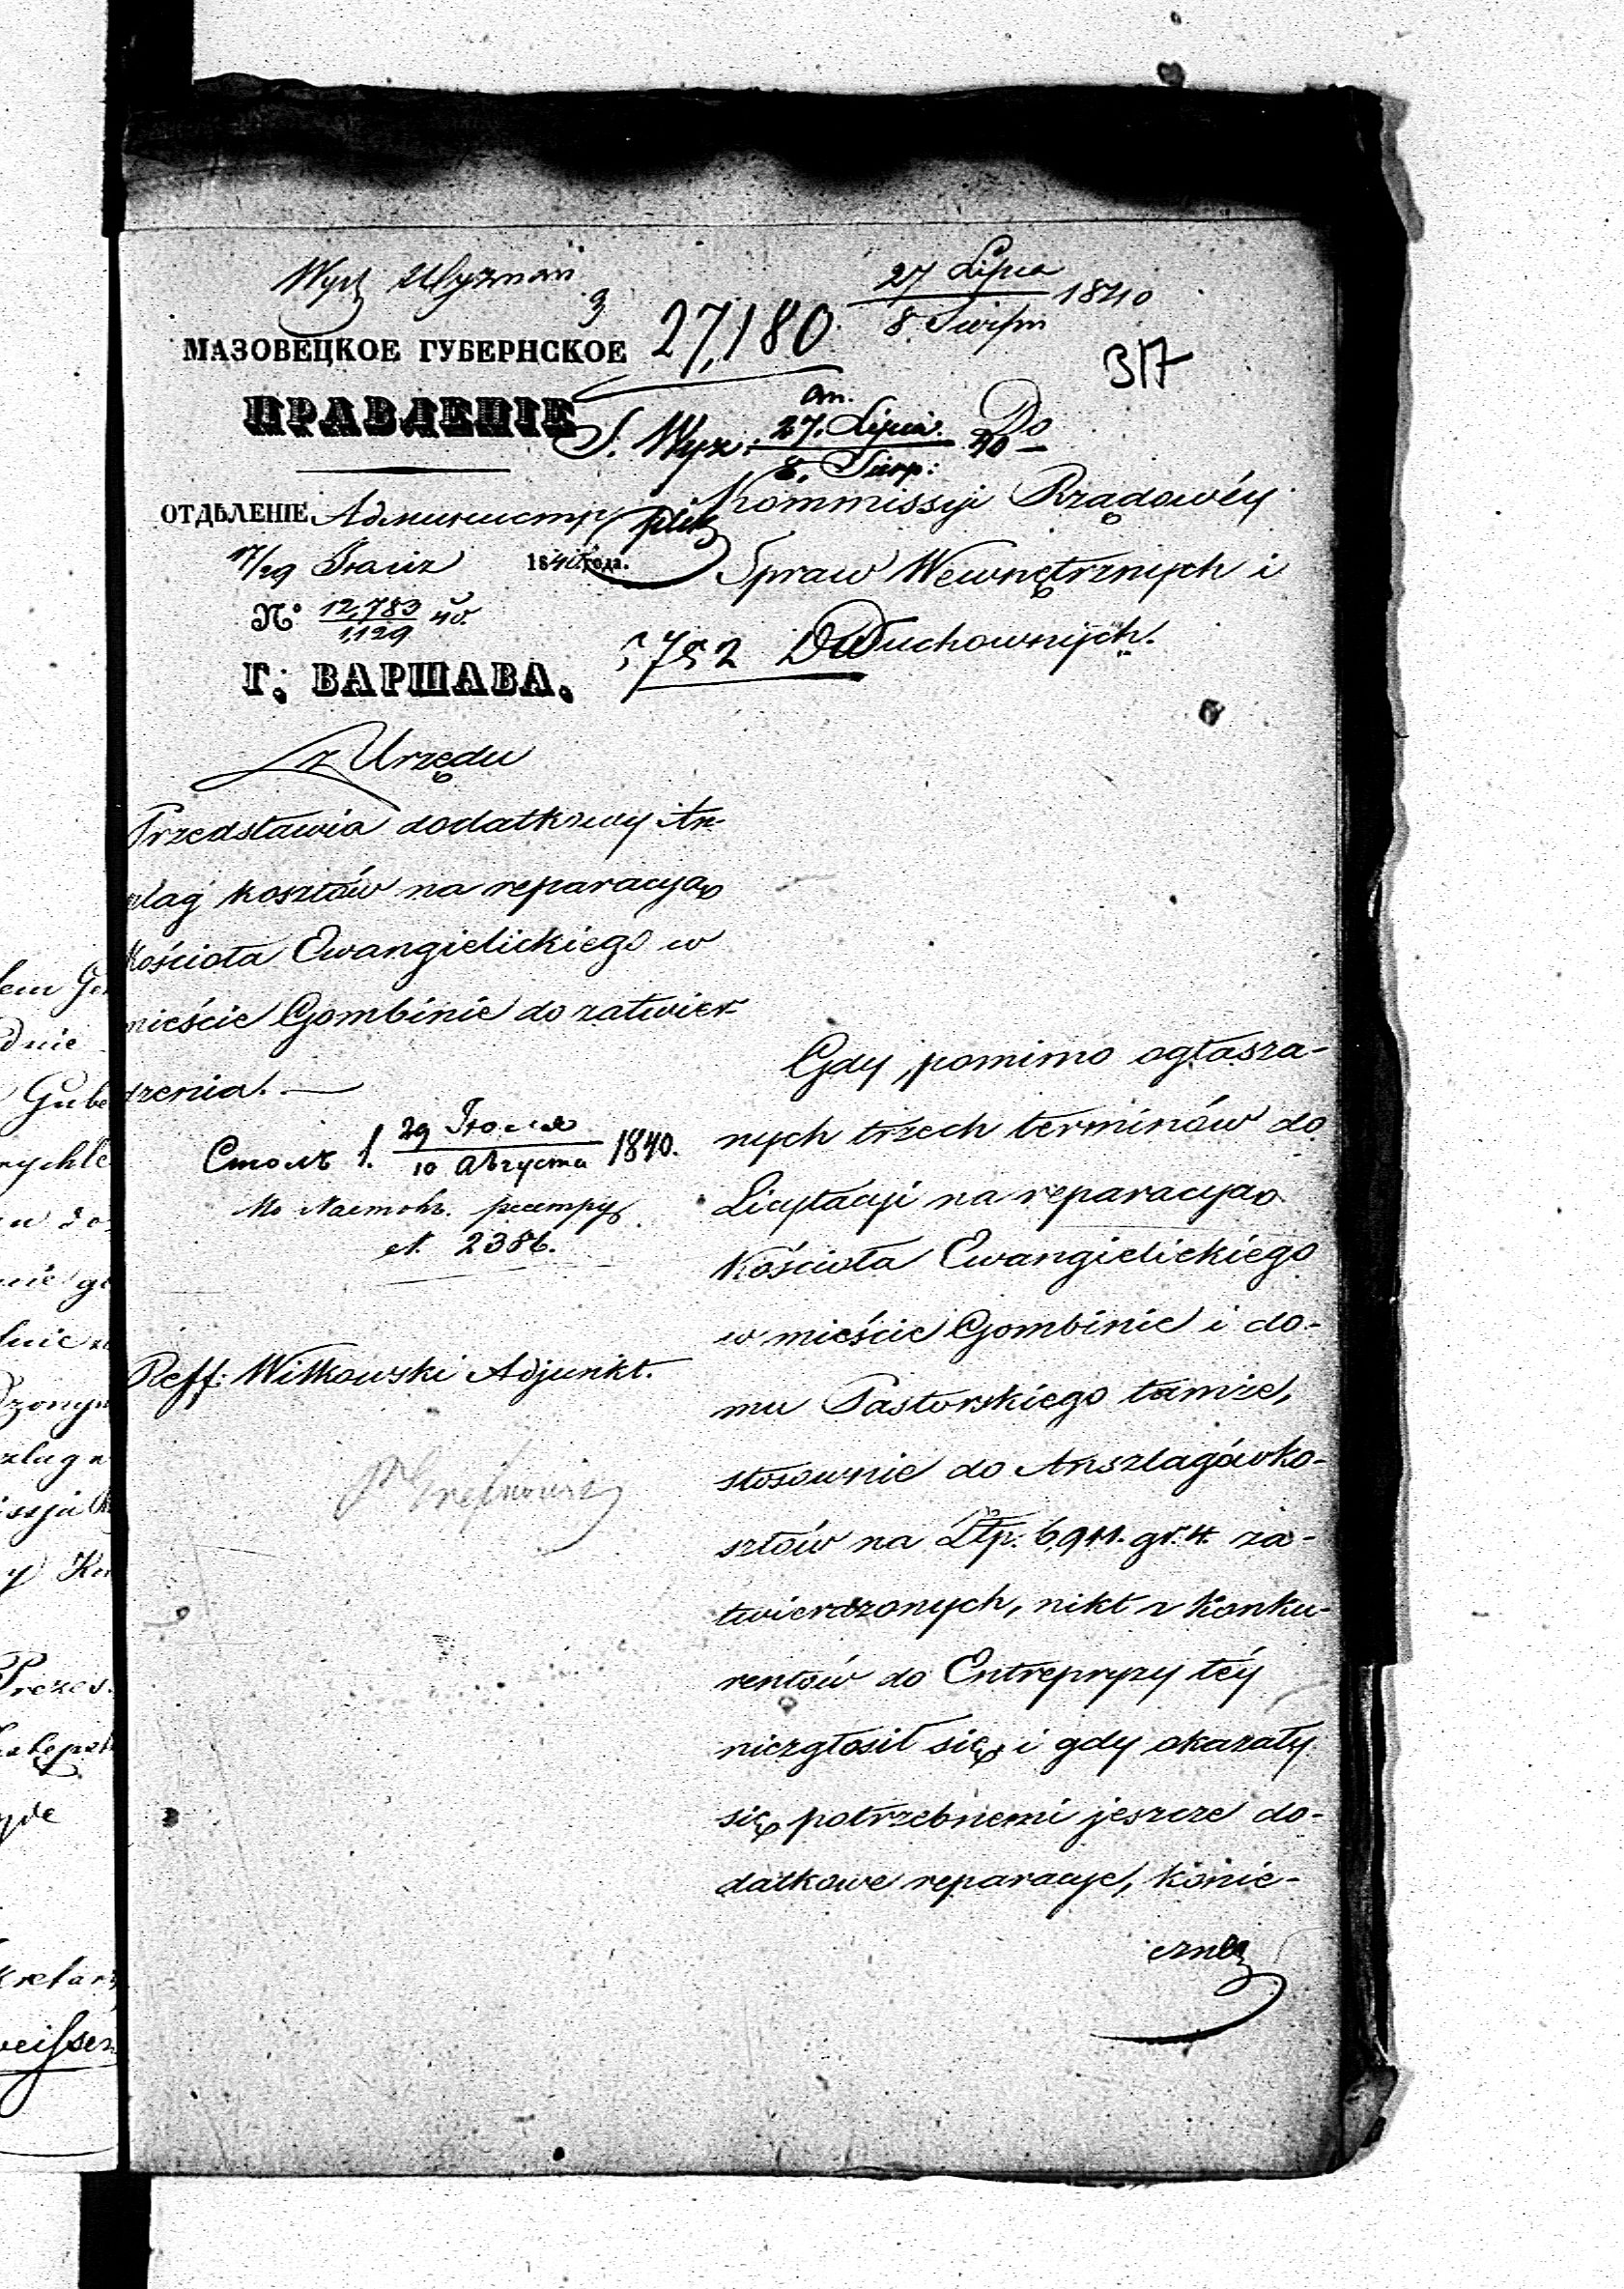 Wydz Wyznań
27 Lipca
8. Sierpn 1840
27,180
317
МАЗОВЕЦКОЕ ГУБЕРНСКОЕ
ПРАВЛЕНІЕ
S. Wyz: 27. Lipca.
8. Sierp:
Do
ОТДѢЛЕНІЕ Администр
Kommissyi Rządowéy
17/29 1840 года.
Spraw Wewnętrznych i
№ 12,783
1,129
5752 D Duchownych.
Г. ВАРШАВА.
z Urzędu
Przedstawia dodatkowy An-
szlag kosztów na reparacyą
Kościoła Ewangielickiego w
mieście Gombinie do zatwier-
dzenia.
Столъ 1. 29 Іюля
10 Августа 1840.
По Настол. реестру
N. 2386.
Reff: Witkowski Adjunkt.
Gdy, pomimo ogłasza-
nych trzech terminów do
Licytacyi na reparacyą
Kościoła Ewangielickiego
w mieście Gombinie i do-
mu Pastorskiego tamże,
stosownie do Anszlagów ko-
sztów na Złp. 6,911. gr. 4. za-
twierdzonych, nikt z konku-
rentów do Entrepryzy téy
niezgłosił się, i gdy okazały
się potrzebnemi jeszcze do-
datkowe reparacye, konie-
czne